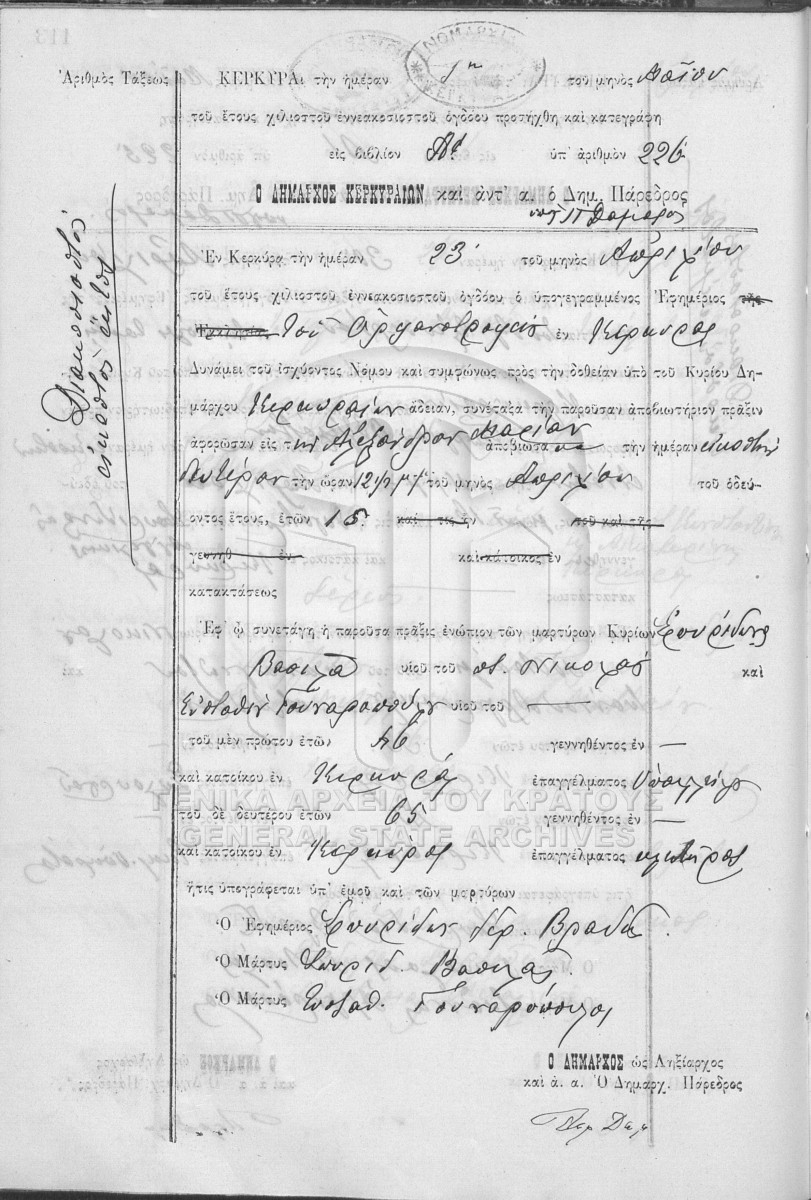 Ἀριθμὸς Τάξεως
Διακοσιοστὸς
εἰκοστὸς ἕκτος
ΚΕΡΚΥΡΑι τὴν ἡμέραν 1η τοῦ μηνὸς Μαΐου
τοῦ ἔτους χιλιοστοῦ ἐννεακοσιοστοῦ ὀγδόου προσήχθη καὶ κατεγράφη
εἰς βιβλίον ὑπ' ἀριθμὸν 226
Ο ΔΗΜΑΡΧΟΣ ΚΕΡΚΥΡΑΙΩΝ καὶ ἀντ' α. ὁ Δημ. Πάρεδρος
Ἐν Κερκύρᾳ τὴν ἡμέραν 23 τοῦ μηνὸς Ἀπριλίου
τοῦ ἔτους χιλιοστοῦ ἐννεακοσιοστοῦ ὀγδόου ὁ ὑπογεγραμμένος Ἐφημέριος τῆς
Ἐκκλησίας τοῦ Ὀρφανοτροφείου ἐν Κερκύρᾳ
Δυνάμει τοῦ ἰσχύοντος Νόμου καὶ συμφώνως πρὸς τὴν δοθεῖσαν ὑπὸ τοῦ Κυρίου Δη-
μάρχου Κερκυραίων ἄδειαν, συνέταξα τὴν παροῦσαν ἀποβιωτήριον πρᾶξιν
ἀφορῶσαν εἰς τὴν Ἀλεξάνδραν Μαρίαν ἀποβιώσα τὴν ἡμέραν εἰκοστὴν
δευτέραν τὴν ὥραν 12 1/2 μ.μ. τοῦ μηνὸς Ἀπριλίου τοῦ ὁδεύ-
οντος ἔτους, ἐτῶν 15 καὶ τις ἦν τοῦ καὶ τῆς
γεννηθ ἐν καὶ κάτοικος ἐν
κατακτάσεως
Ἐφ' ᾧ συνετάγη ἡ παροῦσα πρᾶξις ἐνώπιον τῶν μαρτύρων Κυρίων Σπυρίδωνος
Βασιλᾶ υἱοῦ τοῦ π. Νικολάου καὶ
Εὐσταθίου Γουναροπούλου υἱοῦ τοῦ —
τοῦ μὲν πρώτου ἐτῶν 46 γεννηθέντος ἐν —
καὶ κατοίκου ἐν Κερκύρᾳ ἐπαγγέλματος ὑπαλλήλου
τοῦ δὲ δευτέρου ἐτῶν 65 γεννηθέντος ἐν —
καὶ κατοίκου ἐν Κερκύρᾳ ἐπαγγέλματος κλητῆρος
ΓΕΝΙΚΑ ΑΡΧΕΙΑ ΤΟΥ ΚΡΑΤΟΥΣ
GENERAL STATE ARCHIVES
ἥτις ὑπογράφεται ὑπ' ἐμοῦ καὶ τῶν μαρτύρων
Ὁ Ἐφημέριος Σπυρίδων ἱερ. Βραδᾶς
Ὁ Μάρτυς Σπυρίδ. Βασιλᾶς
Ὁ Μάρτυς Εὐσταθ. Γουναρόπουλος
Ο ΔΗΜΑΡΧΟΣ ὡς Ληξίαρχος
καὶ ἀ. α. Ὁ Δημαρχ. Πάρεδρος